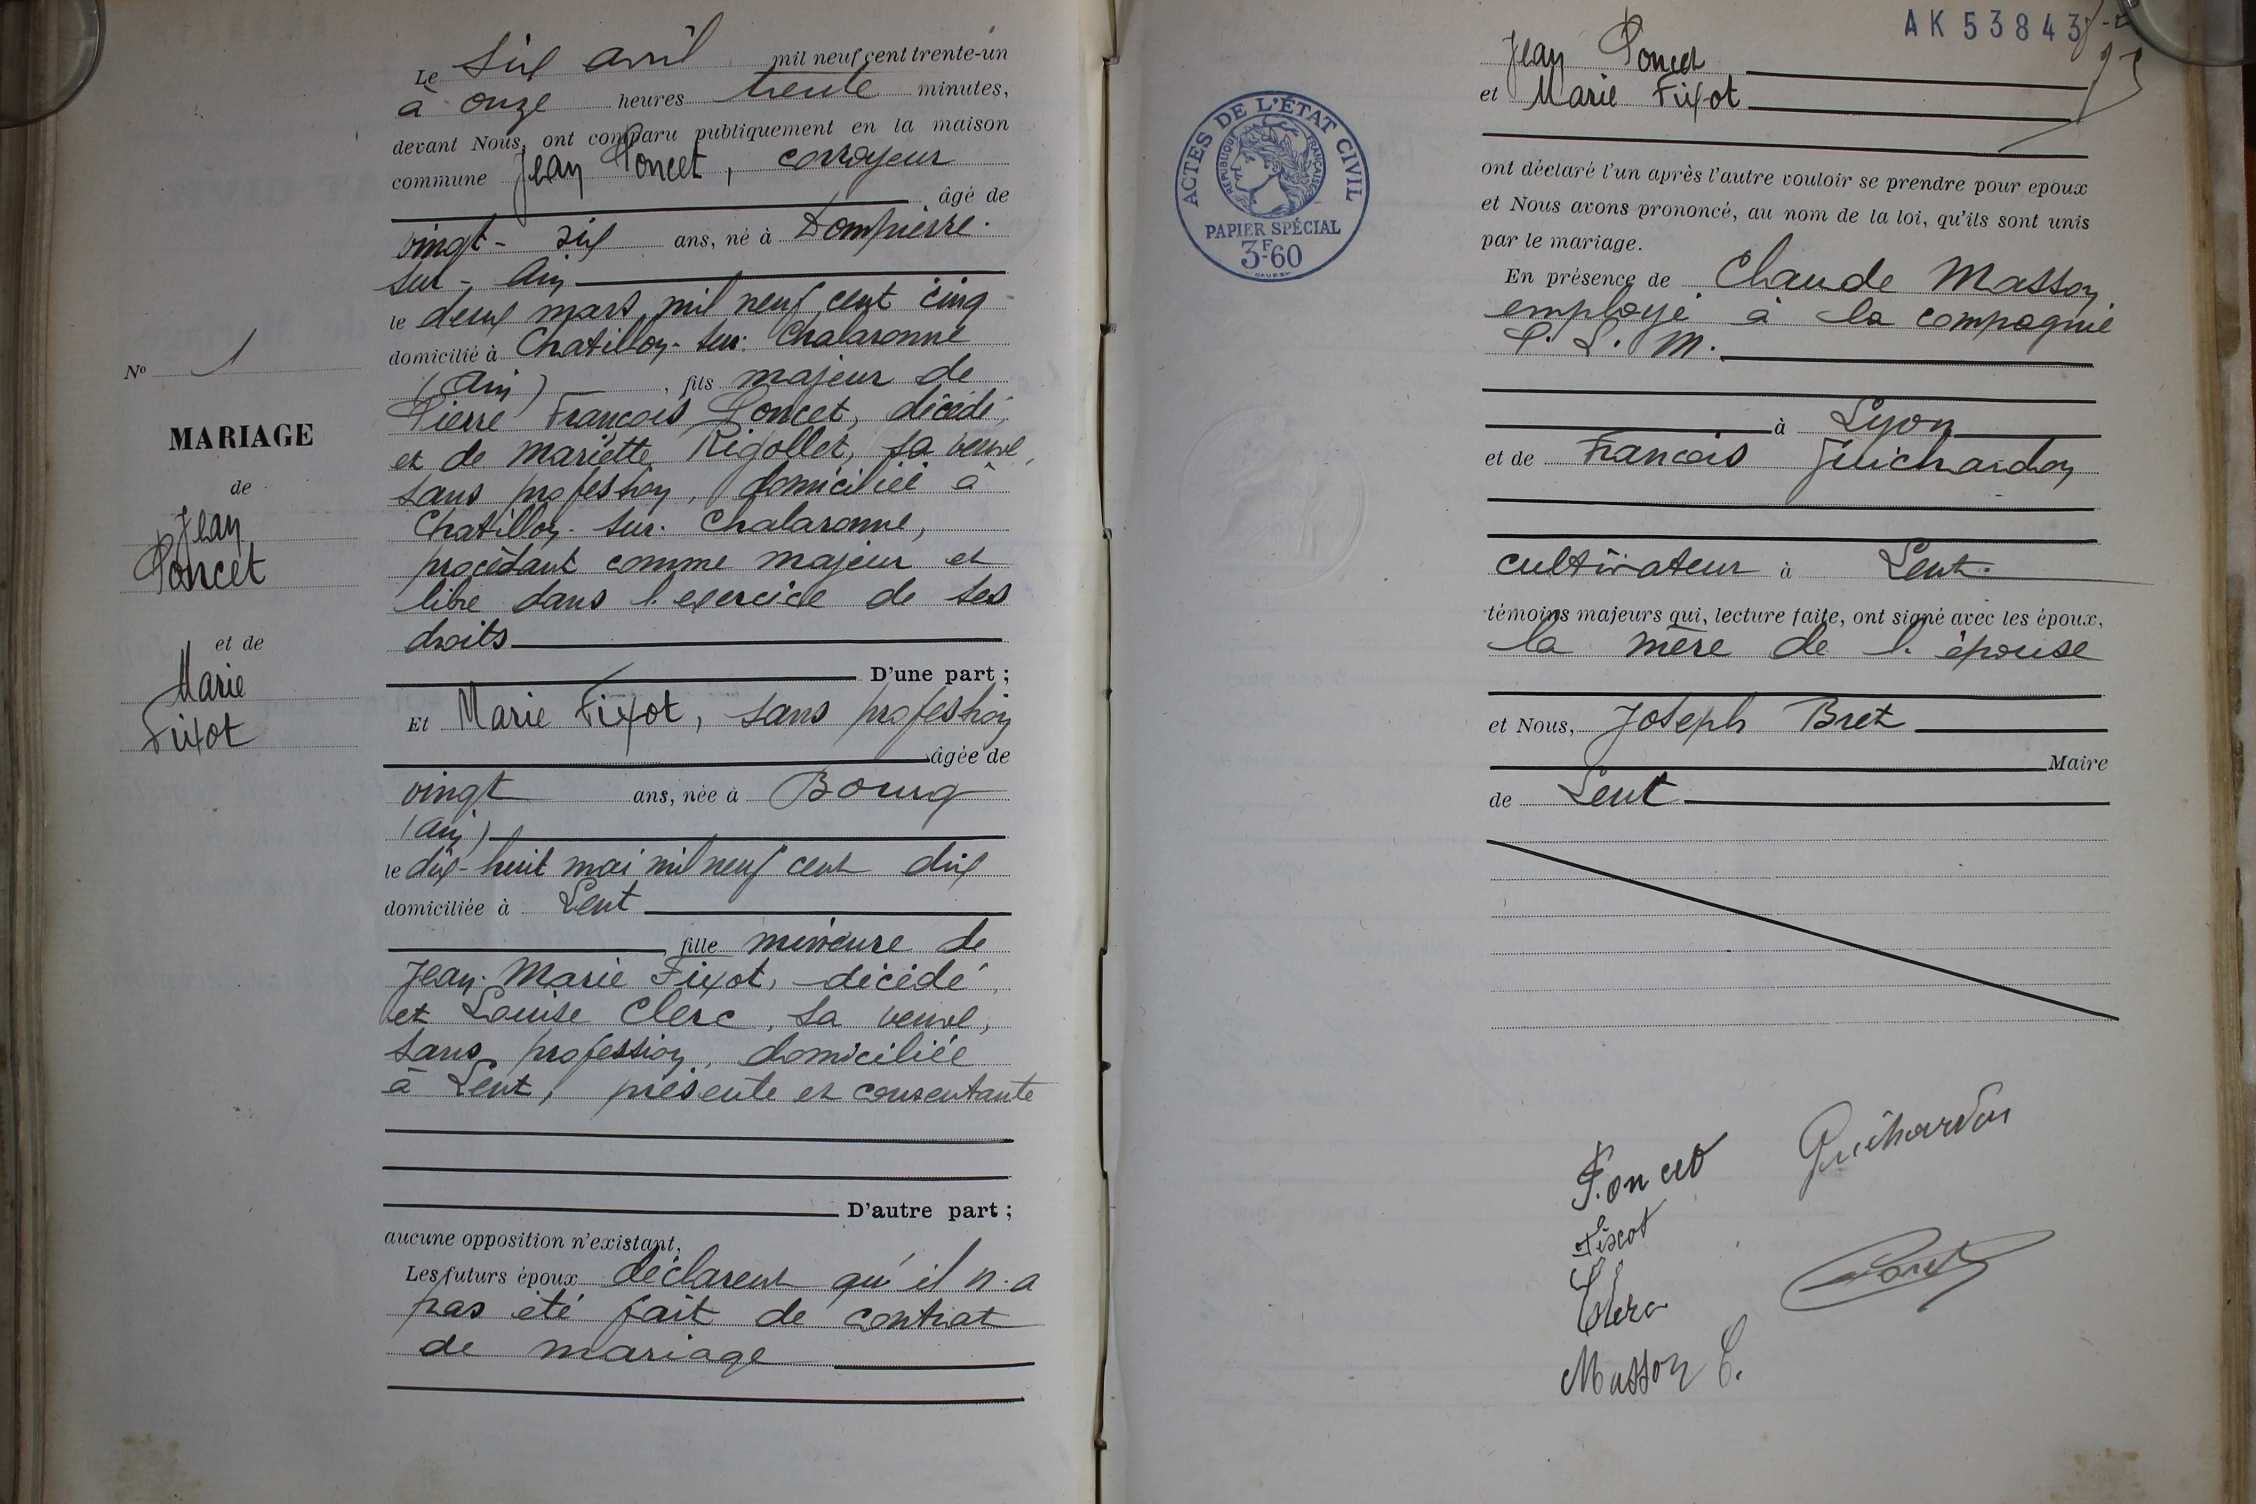 Le six avril mil neuf cent trente-un
à onze heures trente minutes,
devant Nous, ont comparu publiquement en la maison
commune Jean Poncet, corroyeur
âgé de
vingt-six ans, né à Dompierre-
sur-Ain
le deux mars mil neuf cent cinq
domicilié à Chatillon-sur-Chalaronne
(Ain), fils majeur de
Pierre François Poncet, décédé,
et de Mariette Rigollet, sa veuve,
sans profession, domiciliée à
Chatillon-sur-Chalaronne,
procédant comme majeur et
libre dans l'exercice de ses
droits
D'une part ;
Et Marie Fixot, sans profession
âgée de
vingt ans, née à Bourg
(Ain)
le dix-huit mai mil neuf cent dix
domiciliée à Lent
fille mineure de
Jean-Marie Fixot, décédé,
et Louise Clerc, sa veuve,
sans profession, domiciliée
à Lent, présente et consentante
D'autre part ;
aucune opposition n'existant,
Les futurs époux déclarent qu'il n'a
pas été fait de contrat
de mariage
N° 1
MARIAGE
de
Jean
Poncet
et de
Marie
Fixot
AK 53843
Jean Poncet
et Marie Fixot
ACTES DE L'ÉTAT CIVIL
RÉPUBLIQUE FRANÇAISE
PAPIER SPÉCIAL
3F-60
ont déclaré l'un après l'autre vouloir se prendre pour epoux
et Nous avons prononcé, au nom de la loi, qu'ils sont unis
par le mariage.
En présence de Claude Masson,
employé à la compagnie
P. L. M.
à Lyon
et de Francois Guichardon
cultivateur à Lent.
témoins majeurs qui, lecture faite, ont signé avec les époux,
la mère de l'épouse
et Nous, Joseph Bret
Maire
de Lent
Poncet
Guichardon
Fixot
Bret
Clerc
Masson C.